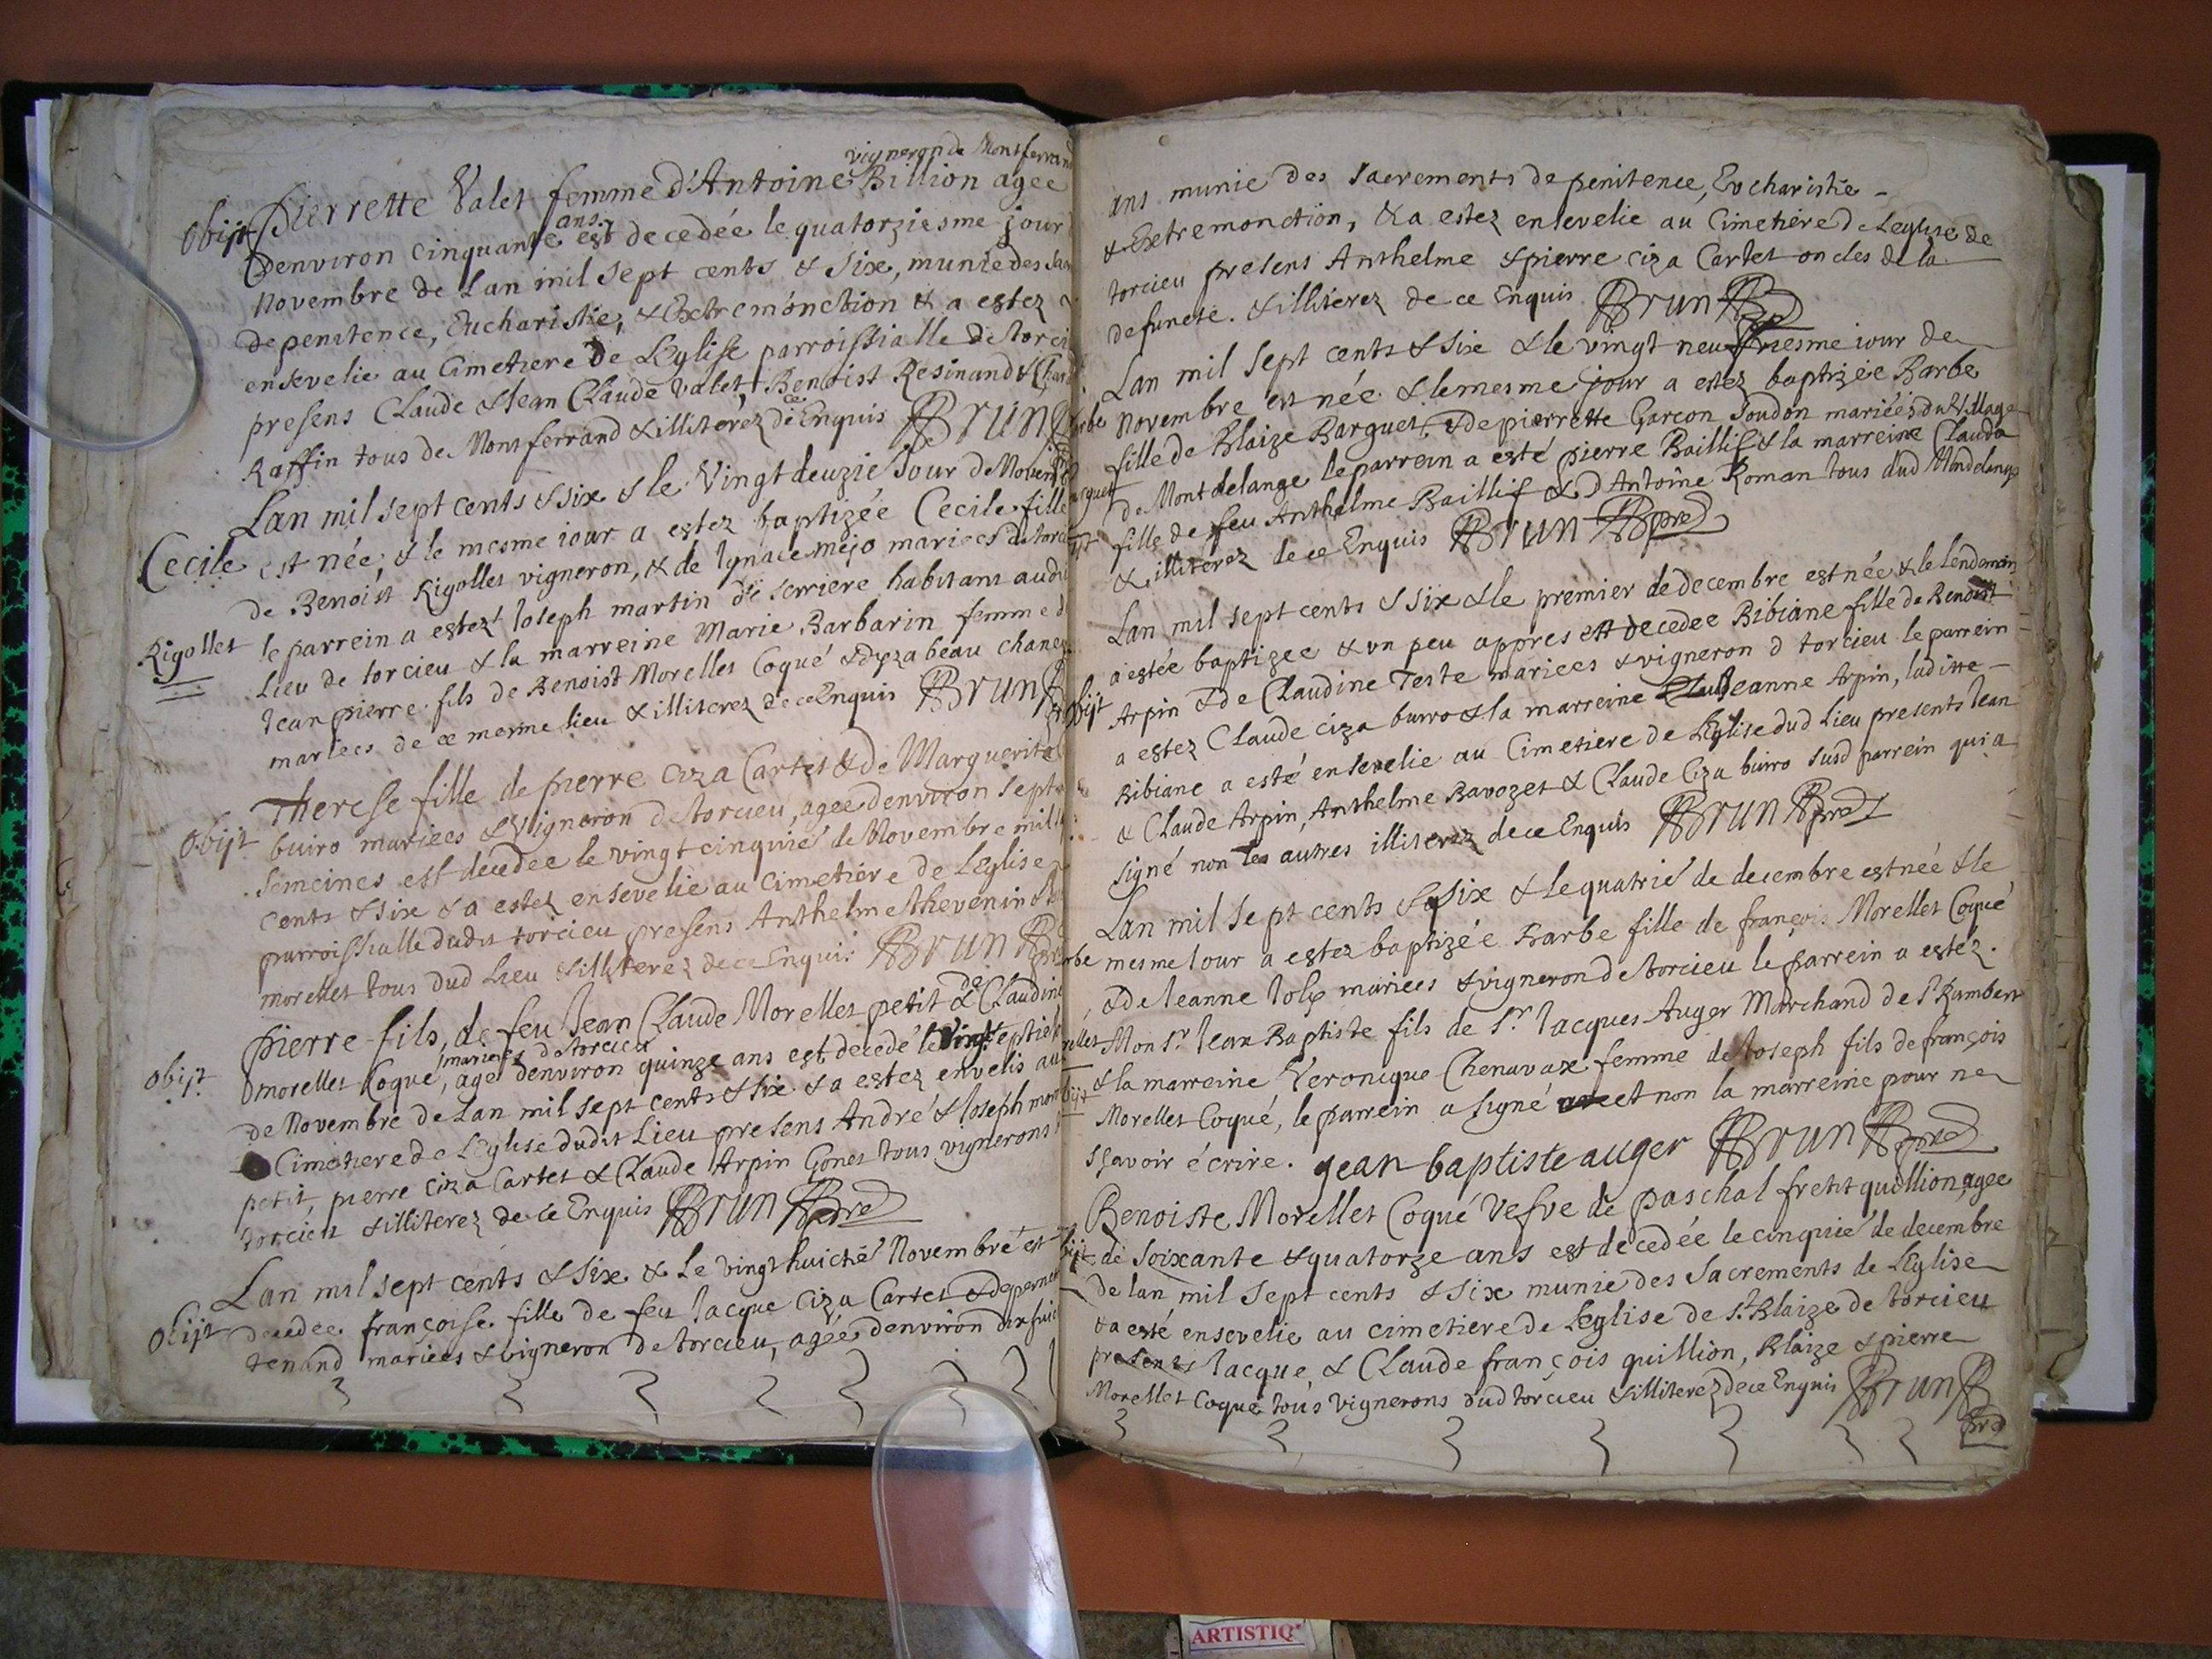 vigneron de Montferrand
Obijt Pierrette Valet femme d'Antoine Billion agee
denviron cinquante ans est decedée le quatorziesme jour
Novembre de Lan mil sept cents & six, munie des
de penitence, Eucharistie, & Extremonction & a estez
ensevelie au Cimetiere de Leglise parroissialle de torci
presens Claude & Jean Claude Valet, Benoist Resinand &
Raffin tous de Montferrand & illiterez de ce Enquis Brun
Lan mil sept cents & six & le Vingt deuzié Jour de Novem
Cecile est née, & le mesme iour a estez baptizée Cecile fille
de Benoist Rigollet vigneron, & de Ignace mejo mariees de torci
Rigollet le parrein a estez Joseph martin de serriere habitant audi
Lieu de torcieu & la marreine Marie Barbarin femme d
Jean pierre fils de Benoist Morellet Coqué & dyzabeau chane
mariees de ce mesme lieu & illiterez de ce Enquis Brun
Therese fille de pierre Ciza Cartet & de Marguerite
Obijt buiro mariees & Vigneron de torcieu, agee denviron sept
semeines est decedee le vingt cinquié de Novembre mil
cents & six & a estez ensevelie au cimetiere de Leglise
parroissialle dudit torcieu presens Anthelme thevenin &
morellet tous dud Lieu & illiterez de ce Enquis Brun
pierre fils de feu Jean Claude Morellet petit & de Claudine
Obijt morellet Coqué, mariees de torcieu agé denviron quinze ans est decedé le Vingt septié
de Novembre de Lan mil sept cents & six & a estez envelis au
Cimetiere de Leglise dudit Lieu presens André & Joseph mor
petit, pierre Ciza Cartet & Claude Arpin Gonet tous vignerons
torcieu & illiterez de ce Enquis Brun pre
Lan mil sept cents & six & Le vingt huictié Novembre est
Obijt decedee françoise fille de feu Jacque Ciza Cartet & de
tenand mariees & vigneron de torcieu, agée denviron
ans munie des Sacrements de penitence, Eucharistie
& Extremonction, & a estez ensevelie au Cimetiere de Leglise de
torcieu presens Anthelme & pierre ciza Cartet oncles de la
defuncte. & illiterez de ce Enquis Brun
Lan mil sept cents & six & le vingt neufviesme iour de
Novembre est née & le mesme jour a estez baptizée Barbe
fille de Blaize Barguet, & de pierrette Garcon Joudon mariées du Village
de Montdelange le parrein a esté pierre Baillif & la marreine Clauda
fille de feu Anthelme Baillif & d Antoîne Roman tous dud Mondelange
& illiterez de ce Enquis Brun pre
Lan mil sept cents & six & le premier de decembre est née & le lendemain
a estée baptizee & un peu appres est decedee Bibiane fille de Benoist
Arpin & de Claudine Teste mariees & vigneron d torcieu le parrein
a estez Claude ciza buiro & la marreine Jeanne Arpin, laditte
Bibiane a esté ensevelie au Cimetiere de Leglise dud Lieu presents Jean
& Claude Arpin, Anthelme Ravozet & Claude Ciza buiro susd parrein qui a
signé non les autres illiterez de ce Enquis Brun pre
Lan mil sept cents & six & le quatrié de decembre est née & le
mesme Iour a estez baptizée Barbe fille de françois Morellet Coqué
& de Jeanne Joly mariees & vigneron de torcieu le parrein a estéz
Mons.r Jean Baptiste fils de S.r Jacques Auger Marchand de S.t Rambert
& la marreine Veronique Chenavax femme de Joseph fils de françois
Morellet Coqué, le parrein a signé et non la marreine pour ne
sçavoir écrire. jean baptiste auger Brun pre
Benoiste Morellet Coqué Vefve de paschal fretit quillion, agee
de soixante & quatorze ans est decedée le cinquié de decembre
de lan mil sept cents & six munie des Sacrements de Leglise
& a esté ensevelie au cimetiere de Leglise de S.t Blaize de torcieu
presents Jacque & Claude françois quillion, Blaize & pierre
Morellet Coqué tous vignerons dud torcieu & illiterez de ce Enquis Brun
pre
ARTISTIQ